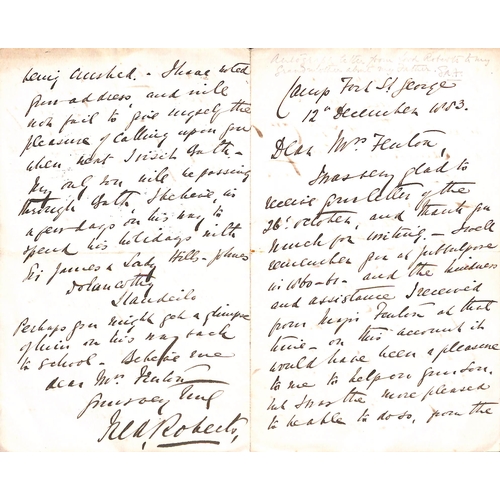 Camp Fort St George
12th December 1883.
Dear Mrs Fenton,
I was very glad to
receive your letter of the
26th October, and thank you
much for writing. - I well
remember you at Jubbulpore
in 1860-61 - and the kindness
and assistance I received
from Major Fenton at that
time - on this account it
would have been a pleasure
to me to help on your son.
but I was the more pleased
to be able to do so, from the
being crushed. - I have noted
your address, and will
not fail to give myself the
pleasure of calling upon you
when next I visit Bath -
My only son will be passing
through Bath, I believe, in
a few days on his way to
spend his holidays with
Sir James & Lady Hills-Johnes
Dolaucothy
Llandeilo
Perhaps you might get a glimpse
of him on his way back
to school - Believe me
dear Mrs Fenton
Yours very truly
Fred. Roberts,